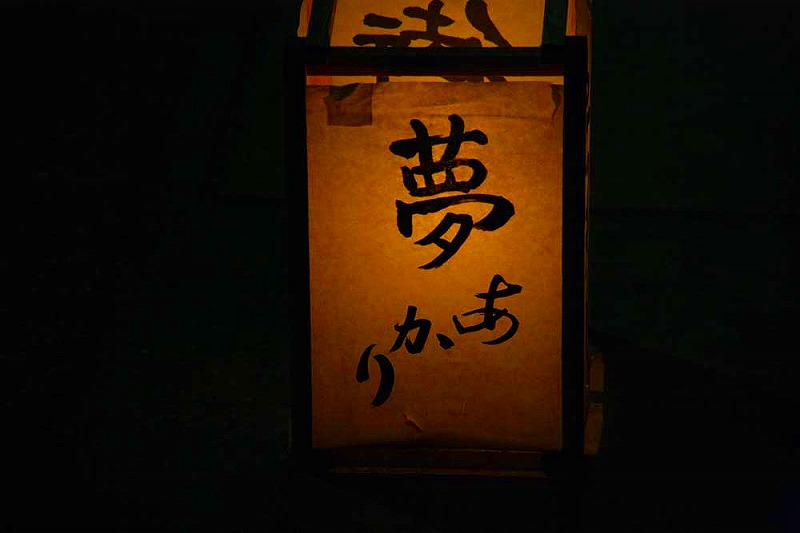 夢
あかり